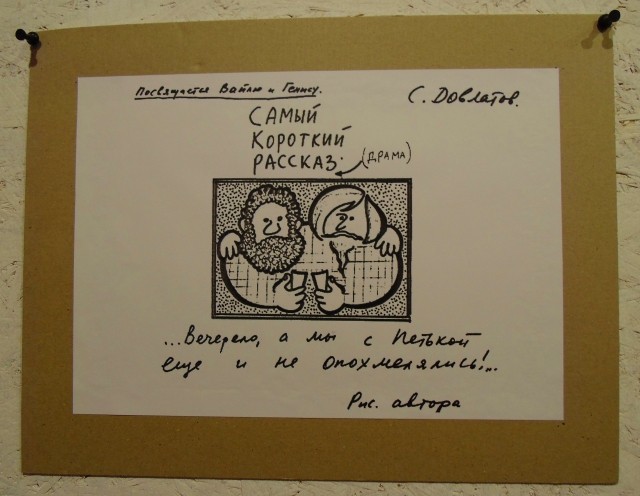 Посвящается Вайлю и Генису.
С. Довлатов.
САМЫЙ
КОРОТКИЙ
РАССКАЗ.
(ДРАМА)
...Вечерело, а мы с Петькой
еще и не опохмелялись!..
Рис. автора